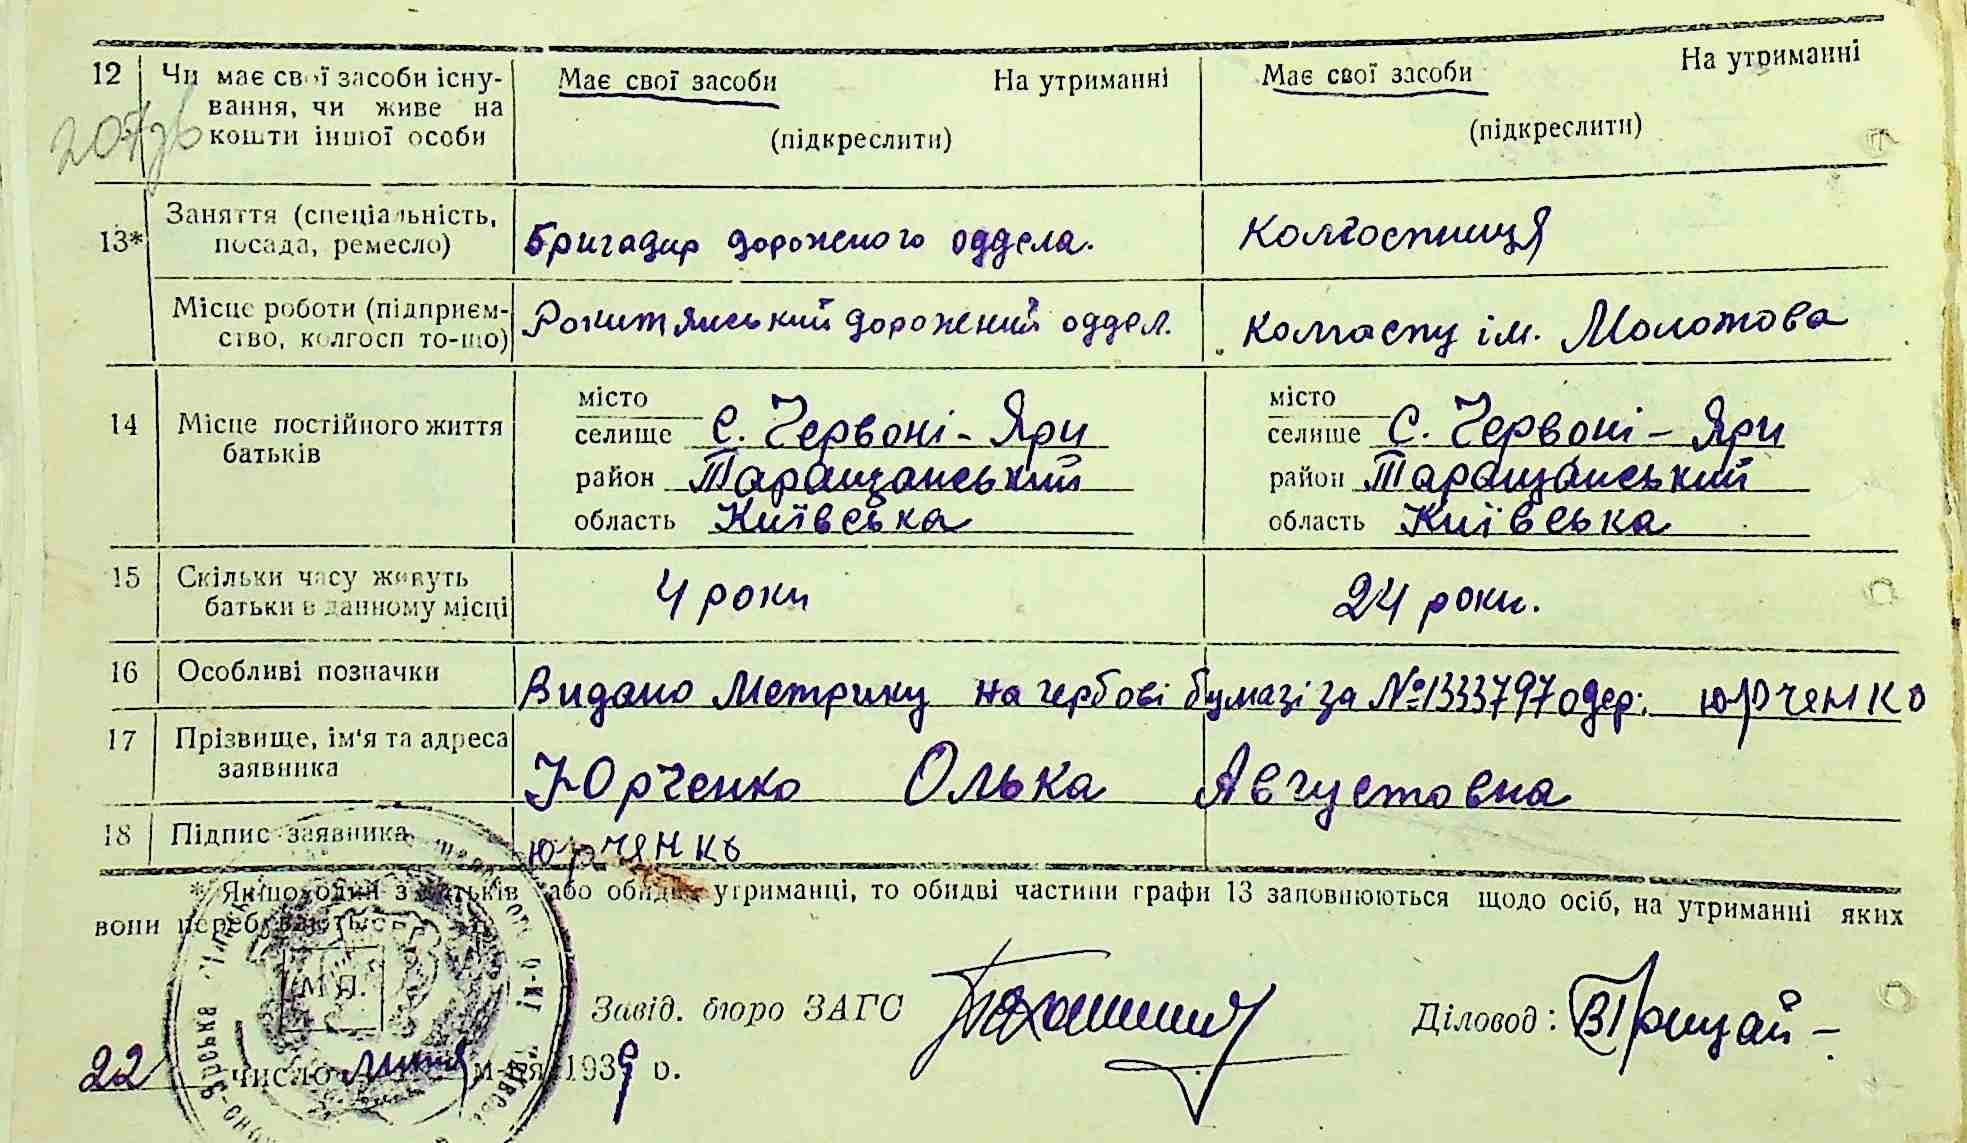 12 Чи має свої засоби існу- Має свої засоби На утриманні Має свої засоби На утриманні
вання, чи живе на
кошти іншої особи (підкреслити) (підкреслити)
13* Заняття (спеціальність, Бригадир дорожного оддела. Колгоспниця
посада, ремесло)
Місце роботи (підприєм- Рокитянський дорожений оддел. Колгоспу ім. Молотова
ство, колгосп то-що)
14 Місце постійного життя місто місто
батьків селище С. Червоні-Яри селище С. Червоні-Яри
район Таращанський район Таращанський
область Київська область Київська
15 Скільки часу живуть 4 роки 24 роки.
батьки в данному місці
16 Особливі позначки Видано Метрику на гербові бумазі за №1333797 одер: юрченко
17 Прізвище, ім'я та адреса Юрченко Олька Августовна
заявника
18 Підпис заявника юрченкь
* Якшо один з батьків або обидва утриманці, то обидві частини графи 13 заповнюються щодо осіб, на утриманні яких
вони перебувають.
М П.
Завід. бюро ЗАГС Діловод:
22 число лютого м-ця 1939 р.